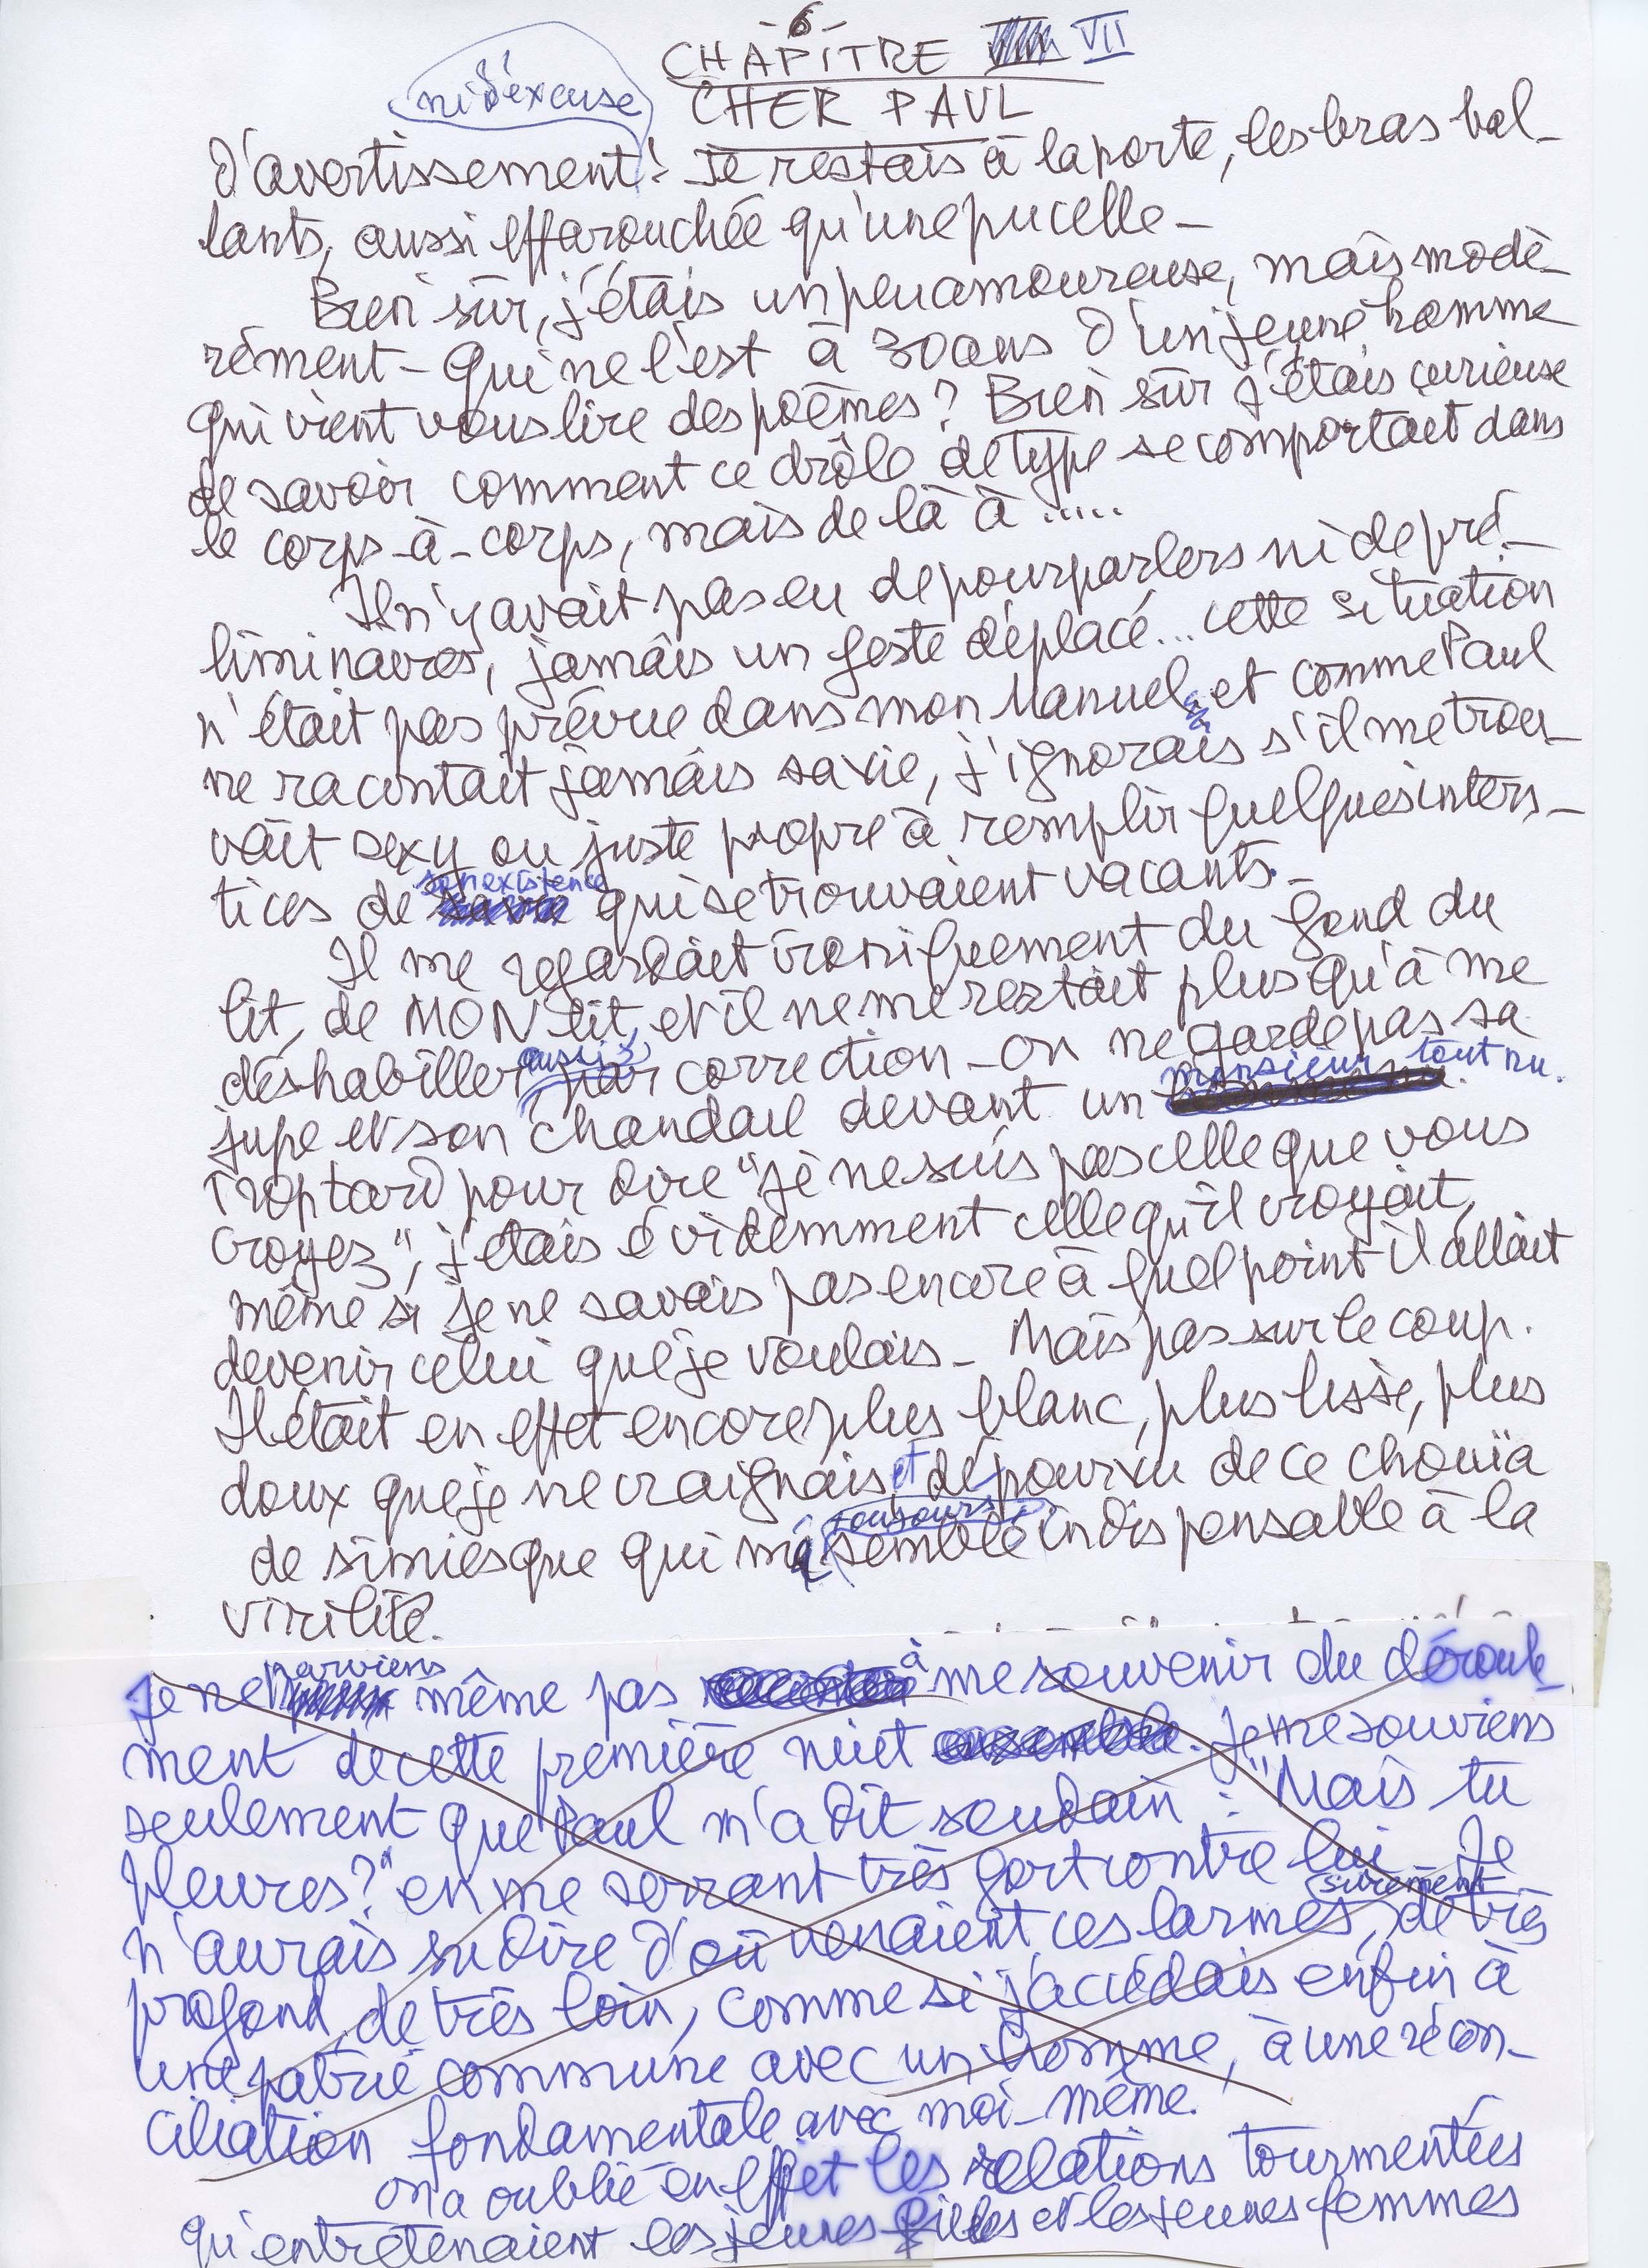 -6-
CHAPITRE VII
CHER PAUL
ni d'excuse
d'avertissement! Je restais à la porte, les bras bal-
lants, aussi effarouchée qu'une pucelle-
Bien sûr, j'étais un peu amoureuse, mais modé-
rément - Qui ne l'est à 30 ans d'un jeune homme
qui vient vous lire des poèmes? Bien sûr j'étais curieuse
de savoir comment ce drôle de type se comportait dans
le corps-à-corps, mais de là à .....
Il n'y avait pas eu de pourparlers ni de pré-
liminaires, jamais un geste déplacé... cette situation
n'était pas prévue dans mon Manuel et comme Paul
ne racontait jamais sa vie, j'ignorais s'il me trou-
vait sexy ou juste propre à remplir quelques inters-
son existence
tices de sa vie qui se trouvaient vacants.-
Il me regardait ironiquement du fond du
lit, de MON lit, et il ne me restait plus qu'à me
déshabiller aussi, par correction - on ne garde pas sa
monsieur tout nu.
jupe et son chandail devant un homme nu.
Trop tard pour dire "Je ne suis pas celle que vous
croyez", j'étais évidemment celle qu'il croyait,
même si je ne savais pas encore à quel point il allait
devenir celui que je voulais - Mais pas sur le coup.
Il était en effet encore plus blanc, plus lisse, plus
doux que je ne craignais, et dépourvu de ce chouïa
toujours
de simiesque qui m'a semblé indispensable à la
virilité.
parviens
Je ne même pas à me souvenir du déroule-
ment de cette première nuit ensemble. Je me souviens
seulement que Paul m'a dit soudain : "Mais tu
pleures?" en me serrant très fort contre lui. Je
sûrement
n'aurais su dire d'où venaient ces larmes, de très
profond, de très loin, comme si j'accédais enfin à
une patrie commune avec un homme, à une récon-
ciliation fondamentale avec moi-même.
On a oublié en effet les relations tourmentées
qu'entretenaient les jeunes filles et les jeunes femmes